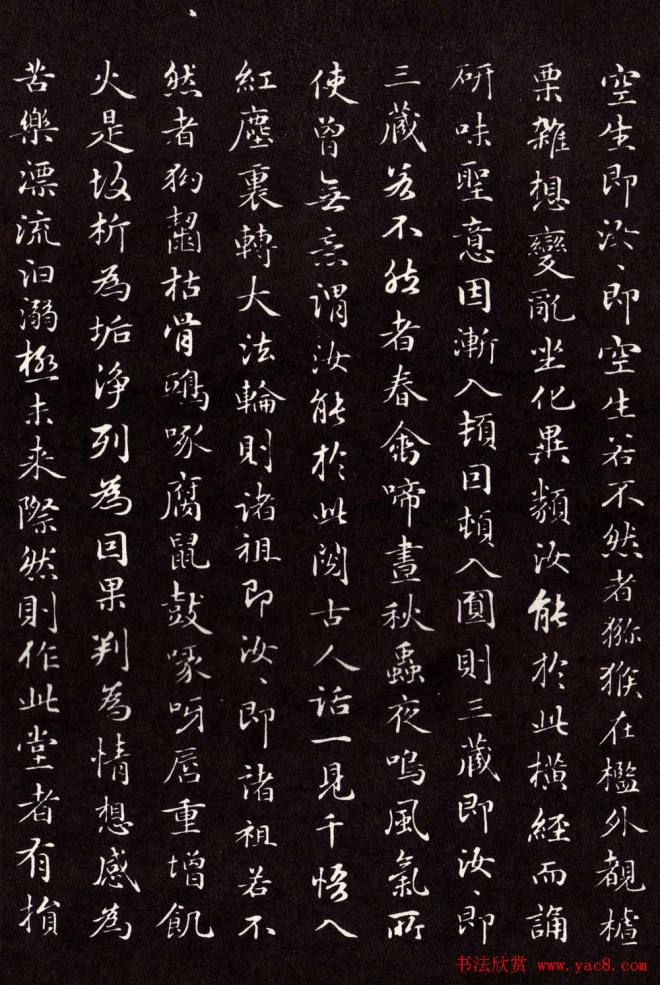 空生即汝、即空生若不然者猕猴在檻外覩樝
栗雜想變亂坐化異類汝能於此橫經而誦
研味聖意因漸入頓因頓入圓則三藏即汝、即
三藏若不然者春禽啼晝秋蟲夜鳴風氣所
使曾無意謂汝能於此閱古人話一見千悟入
紅塵裏轉大法輪則諸祖即汝、即諸祖若不
然者狗齧枯骨鴟啄腐鼠鼓喙呀唇重增飢
火是故析為垢淨列為因果判為情想感為
苦樂漂流汩溺極未来際然則作此堂者有損
书法欣赏 www.yac8.com